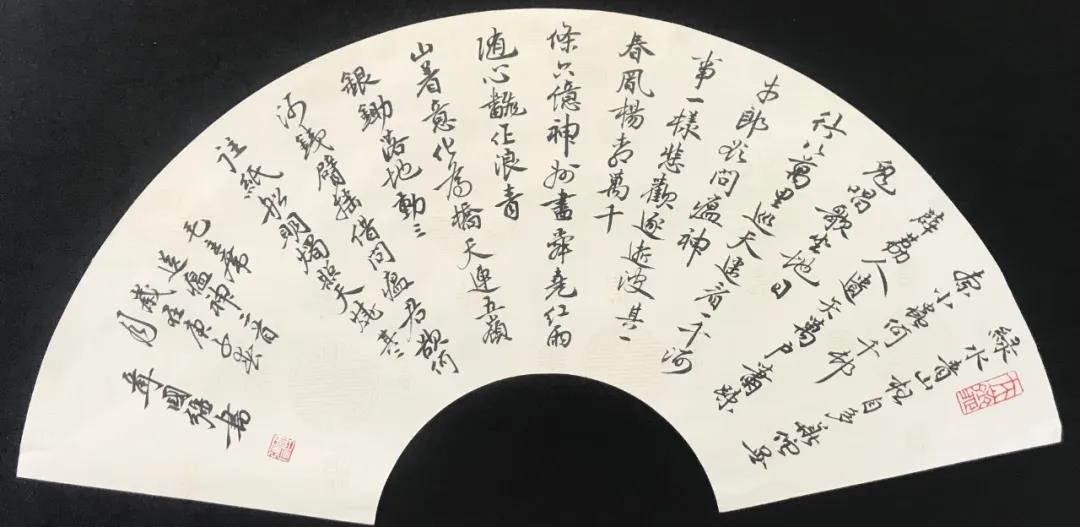 綠水青山枉自多華佗無
奈小蟲何千村
薜荔人遺矢萬戶蕭疏
鬼唱歌坐地日
行八萬里巡天遙看一千河
牛郎欲問瘟神
事一樣悲歡逐逝波其一
春風楊柳萬千
條六億神州盡舜堯紅雨
隨心翻作浪青
山著意化為橋天連五嶺
銀鋤落地動三
河鐵臂搖借問瘟君欲何
往紙船明燭照天燒其二
毛主席
送瘟神二首
歲在庚子春
月
國強書